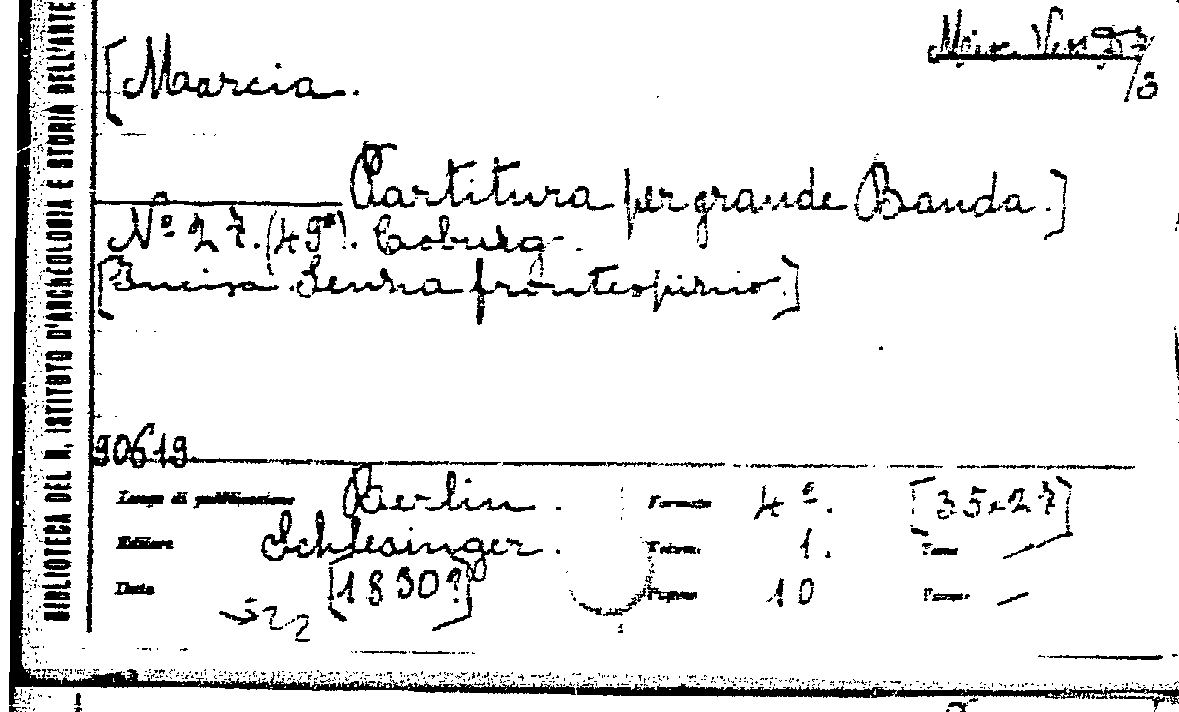 BIBLIOTECA DEL R. ISTITUTO D'ARCHEOLOGIA E STORIA DELL'ARTE
[Marcia.
Partitura per grande Banda.]
Nº 27. (49ª). Coburg.
[Incisa. Senza frontespizio.]
90619
Luogo di pubblicazione Berlin. Formato 4º. [35x27]
Editore Schlesinger. Volumi 1. Tome /
Data [1830?] Pagine 10
522